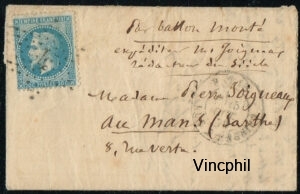 Par ballon monté
expéditeur Mr Joigneaux
rédacteur du Siècle
Madame Pierre Joigneaux
au Mans (Sarthe)
8, Rue verte.
Vincphil